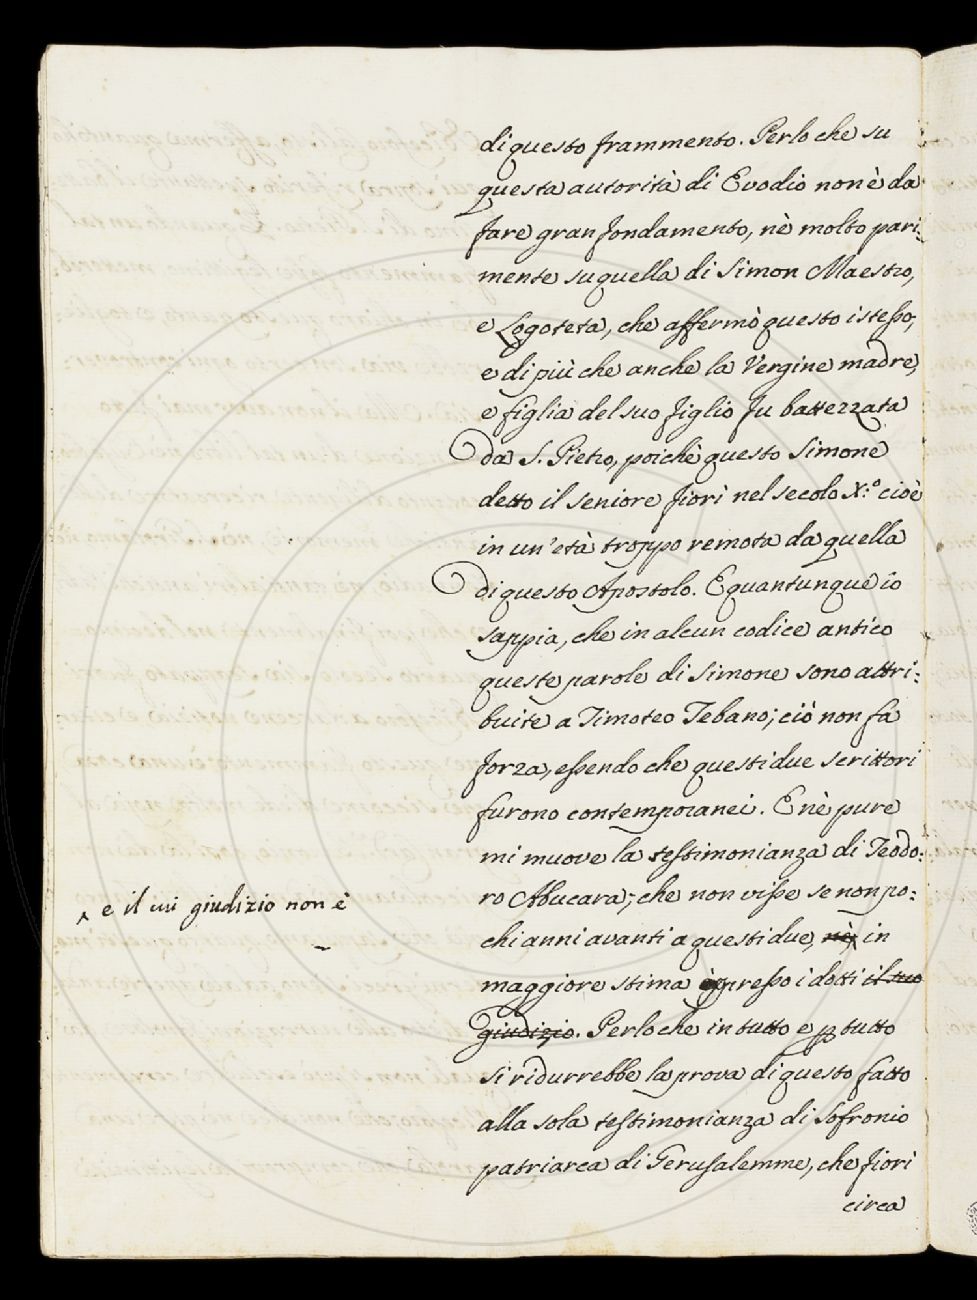 di questo frammento. Perloche su
questa autorità di Evodio non è da
fare gran fondamento, nè molto pari:
mente su quella di Simon Maestro,
e Logoteta, che affermò questo istesso,
e di più che anche la Vergine madre,
e figlia del suo figlio fu battezzata
da S. Pietro, poichè questo Simone
detto il seniore fiorì nel secolo X.º cioè
in un'età troppo remota da quella
di questo Apostolo. E quantunque io
sappia, che in alcun codice antico
queste parole di Simone sono attri:
buite a Timoteo Tebano; ciò non fa
forza, essendo che questi due scrittori
furono contemporanei. E nè pure
mi muove la testimonianza di Teodo:
ro Abucara; che non visse se non po:
chi anni avanti a questi due, nè in
^ e il cui giudizio non è
maggiore stima appresso i dotti il suo
giudizio. Perloche in tutto e p tutto
si ridurrebbe la prova di questo fatto
alla sola testimonianza di Sofronio
patriarca di Gerusalemme, che fiorì
circa